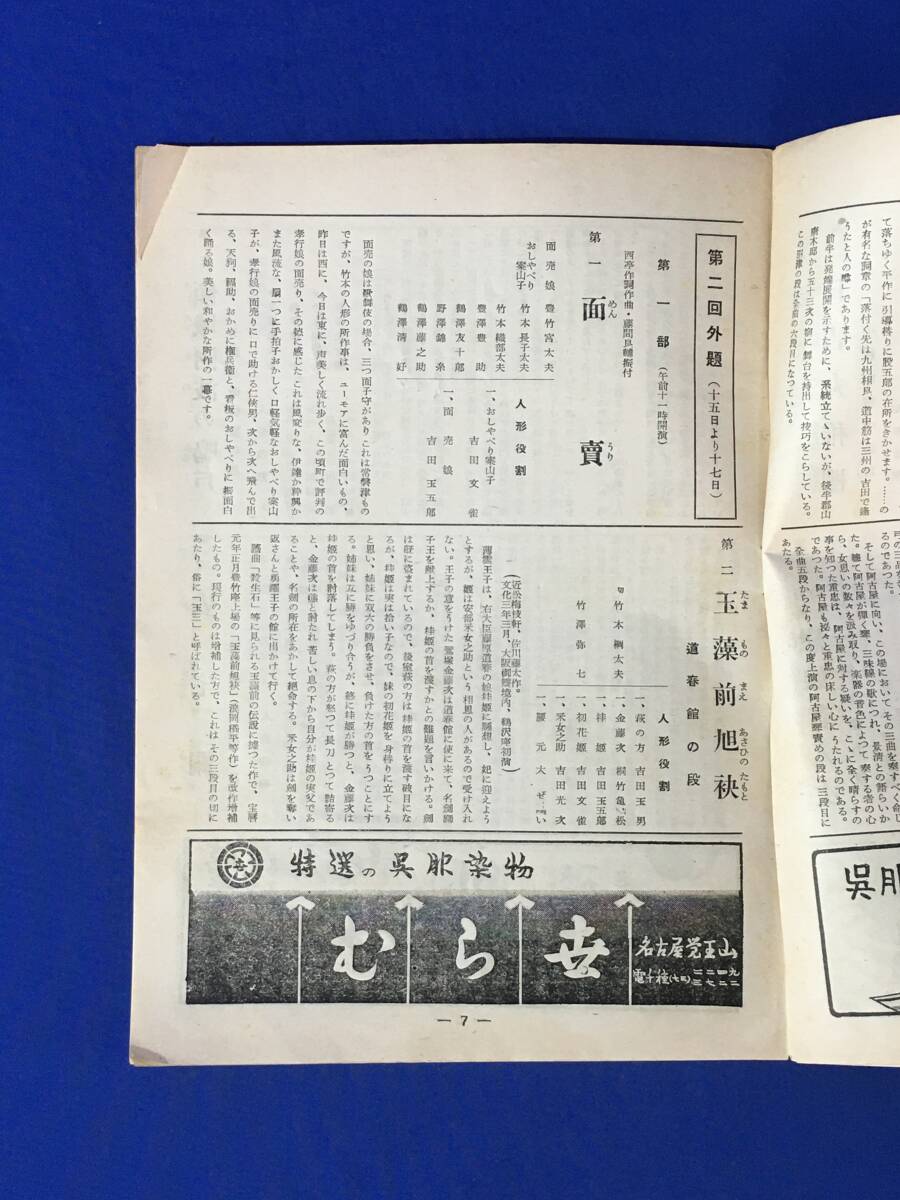 て落ちゆく平作に引導樣りに股五郎の在所をきかせます。……の
が有名な詞章の「落付く先は九州相良、道中筋は三州の吉田で逢
うたと人の噂」であります。
前半は発端展開を示すために、系統立ていないが、後半郡山
唐木邸から五十三次の宿に舞台を持出して技巧をこらしている。
この沼津の段は全曲の六段目になつている。
るのであつた。
そして阿古屋に向い、この場において その三曲を奏すべく命じ
事を知つた重忠は、阿古屋に対する疑いを、こゝに全く晴らすの
であつた。阿古屋も漸々と重忠の床しい心に うたれるのである。
全曲五段からなり、この度上演の阿古屋琴責めの段は 三段目に
あたる。
呉服
第二回外題(十五日より十七日)
第一部(午前十一時開演)
西亭作詞作曲・藤間良輔振付
第一 面賣
めん うり
面売娘 豊竹宮太夫
おしやべり案山子 竹本長子太夫
竹本織部太夫
豊澤豊助
鶴澤友十郎
野澤錦糸
鶴澤藤之助
鶴澤清好
人形役割
一、おしやべり案山子 吉田文雀
一、面売娘 吉田玉五郎
面売の娘は歌舞伎の場合、三つ面子守があり これは常磐津もの
ですが、竹本の人形の所作事は、ユーモアに富んだ面白いもの、
昨日は西に、今日は東に、声美しく流れ歩く、この頃町で評判の
孝行娘の面売り、その徳に感じた これは風変りな、伊達か粋興か
また風流な、扇一つに手拍子おかしく口軽気軽なおしやべり案山
子が、孝行娘の面売りに口で助ける仁俠男、次から次へ飛んで出
る、天狗、福助、おかめに権兵衛と、看板のおしやべりに振面白
く踊る娘。美しい和やかな所作の一幕です。
第二 玉藻前旭袂
たま もの まえ あさひの たもと
道春館の段
竹本綱太夫
竹澤弥七
人形役割
一、萩の方 吉田玉男
一、金藤次 桐竹亀松
一、桂姫 吉田玉五郎
一、初花姫 吉田文雀
一、釆女之助 吉田光次
一、腰元 大ぜい
(近松梅枝軒、佐川藤太作。
文化三年三月、大阪御霊境内、鶴沢席初演)
薄雲王子は、右大臣藤原道春の娘桂姫に懸想し、妃に迎えよう
とするが、姫は安部釆女之助という 相思の人があるので受け入れ
ない。王子の意をうけた 鷲塚金藤次は道春館に使に来て、名剣獅
子王を献上するか、桂姫の首を渡すかとの難題を言いかける。剣
は既に盗まれているので、後室萩の方は 桂姫の首を渡す破目にな
るが、桂姫は実は拾い子なので、妹の初花姫を 身替りに立てよう
と思い、姉妹に双六の勝負をさせ、負けた方の首をうつことにす
る。姉妹は互に勝をゆづり合うが、終に桂姫が勝つと、金藤次は
桂姫の首を討落してしまう。萩の方が怒つて長刀とつて詰寄る
と、金藤次は態と討たれ 苦しい息の下から自分が桂姫の実父であ
ることや、名剣の所在をあかして絶命する。釆女之助は剣を奪い
返さんと勇躍王子の館に出かけて行く。
謡曲「殺生石」等に見られる玉藻前の伝説に拠つた作で、宝暦
元年正月豊竹座上場の「玉藻前曦袂」(浪岡橘平等作)を改作増補
したもの。現行のものは増補した方で、これは その三段目の切に
あたり、俗に「玉三」と呼ばれている。
特選の呉服染物
むら世
名古屋覚王山
電千種(七三)
— 7 —